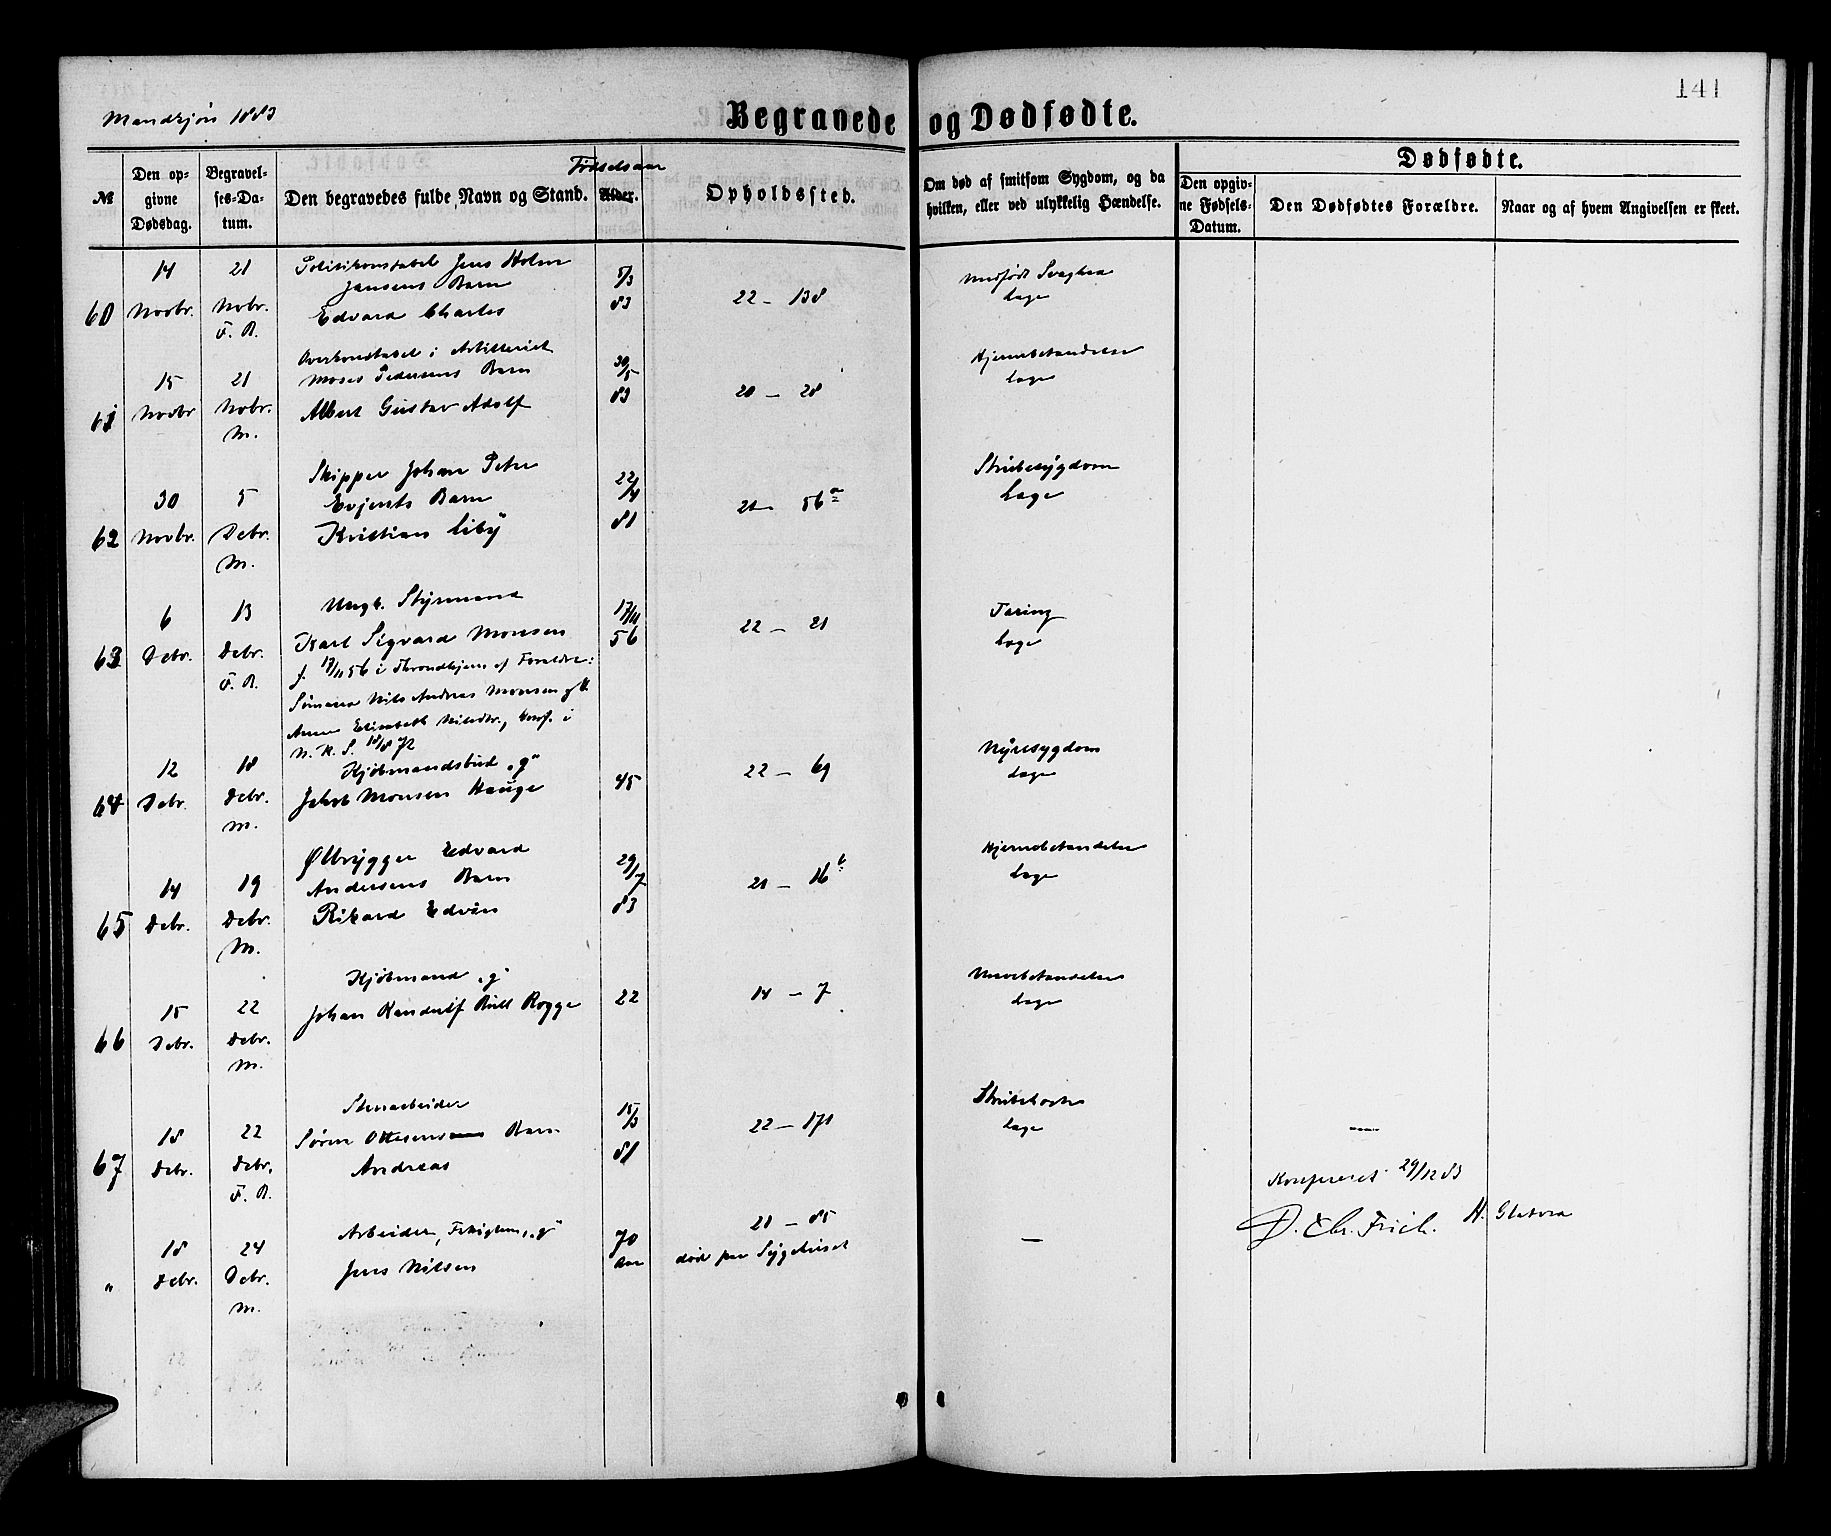 141
Mandkjøn 1883
Begravede og Dødfødte.
№
Den opgivne Dødsdag.
Begravelses-Datum.
Den begravedes fulde Navn og Stand.
Fødselsaar
Alder.
Opholdssted.
Om død af smitsom Sygdom, og da hvilken, eller ved ulykkelig Hændelse.
Dødfødte.
Den opgivne Fødsels-Datum.
Den Dødfødtes Forældre.
Naar og af hvem Angivelsen er skeet.
60
14 Novbr.
21 Novbr. F. R.
Politikonstabel Jens Holm
Jansens Barn
Edvard Charles
5/3 83
22 – 138
Medfødt Svaghed
Læge
61
15 Novbr
21 Novbr. M.
Overkonstabel i Artilleriet
Moses Pedersens Barn
Albert Gustav Adolf
30/5 83
20 – 28
Hjernebetændelse
Læge
62
30 Novbr.
5 Debr. M.
Skipper Johan Peter
Evjents Barn
Kristian
22/4 81
21 – 56 a
Strubesygdom
Læge
63
6 Debr.
13 Debr. F. R.
Ungk. Styrmand
Karl Sigvard Monsen
f. 17/11 56 i Throndhjem af Forældre:
Sømand Nils Andreas Monsen og H.
Anna Elisabeth Nilsdtr., konf. i
N. K. S. 18/8 72
17/11 56
22 – 21
Tæring
Læge
64
12 Debr.
18 Debr. M.
Kjøbmandsbud „g“
Jakob Monsen Hauge
45
22 – 69
Nyresygdom
Læge
65
14 Debr.
19 Debr. M.
Ølbrygger Edvard
Andersens Barn
Rikard Edvin
29/7 83
21 – 16 b
Hjernebetændelse
Læge
66
15 Debr.
22 Debr. M.
Kjøbmand „g“
Johan Randulf Bull Rogge
22
14 – 7
Læge
67
18 Debr.
22 Debr. F. R.
Stenarbeider
Søren Ottesens Barn
Andreas
15/3 81
22 – 171
Strubehoste
Læge
„
18 Debr.
24 Debr. M.
Arbeider, Fattiglem, „g“
Jens Nilsen
70 Aar
21 – 85
død paa Sygehuset
—
Konfereret 29/12 83
D. Chr. Frich. H.